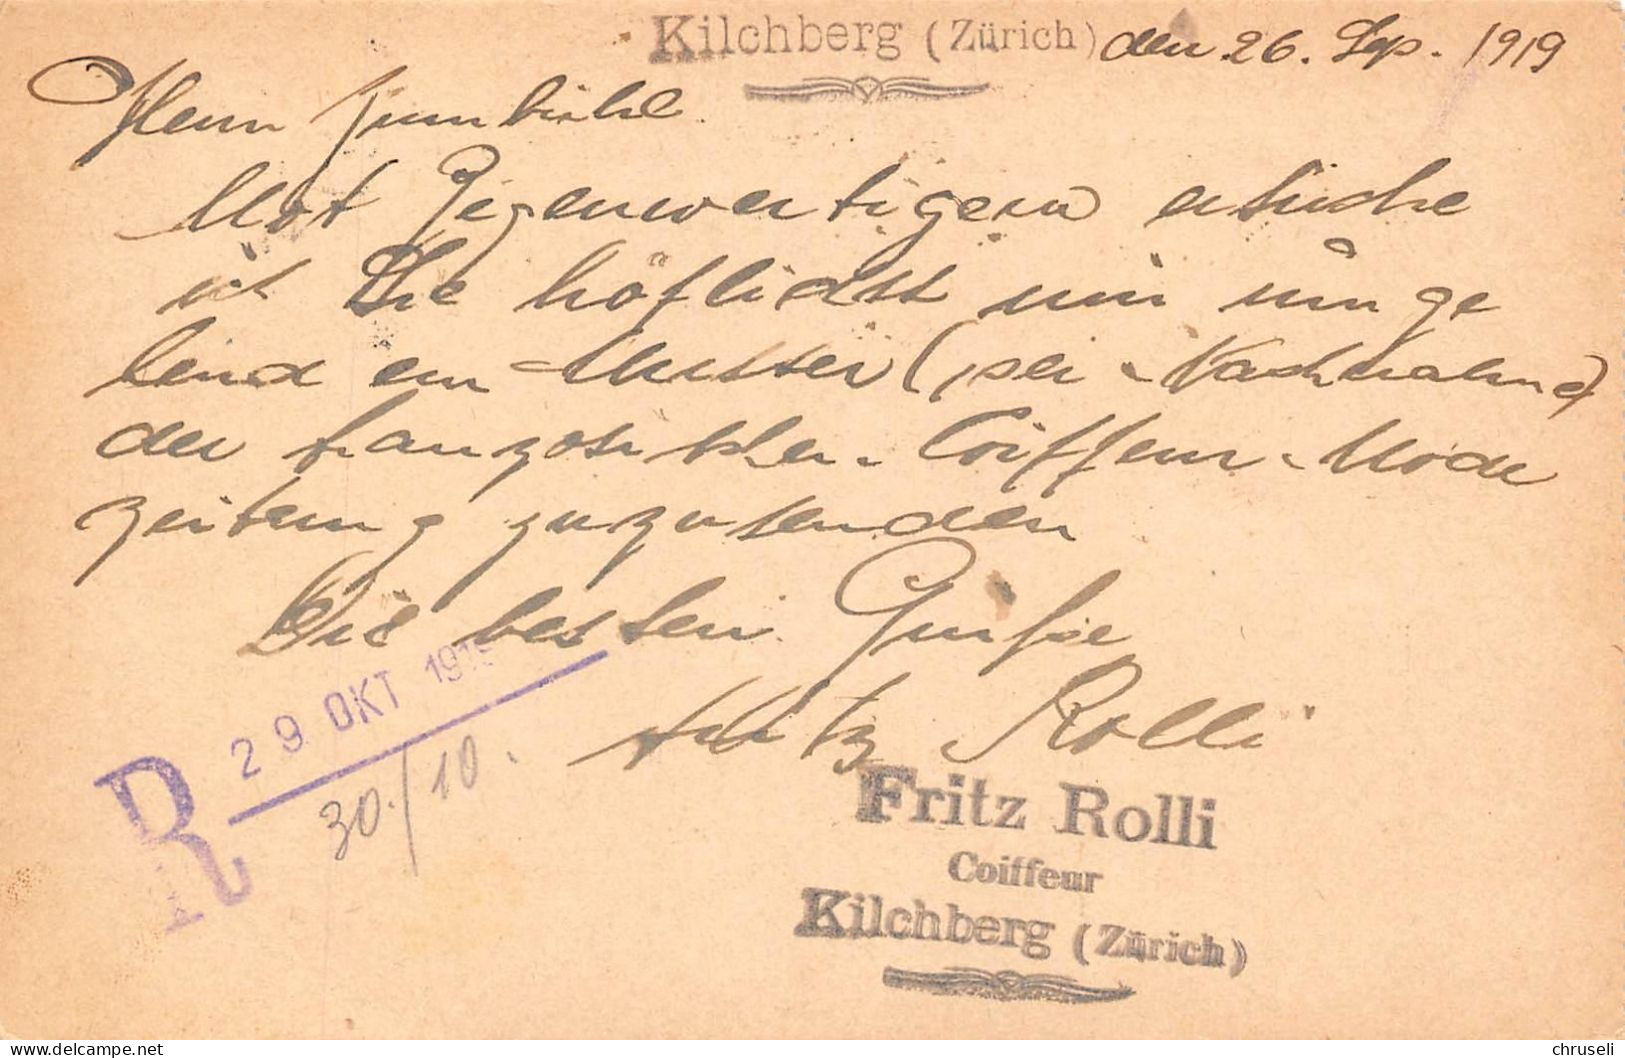 Kilchberg (Zürich) den 26. Sep. 1919
Herr Zumbühl
Mit Gegenwertigem ersuche
ich Sie höflichst mir umge
hend ein Muster (, per Nachnahme)
der französischen Coiffeur-Mode
zeitung zuzusenden
Die besten Grüsse
Fritz Rolli
R 29 OKT 1919
30./10.
Fritz Rolli
Coiffeur
Kilchberg (Zürich)
© chruseli